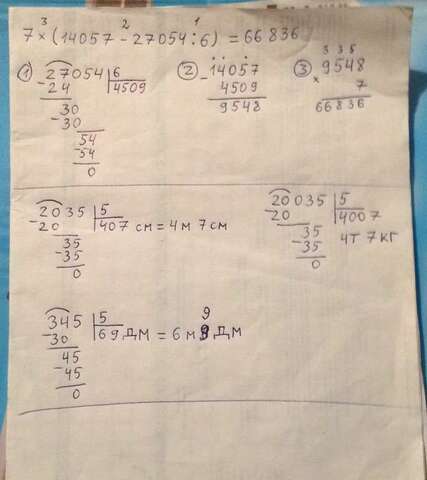 3 2 1
7 × (14057 - 27054 : 6) = 66836
1) 27054 | 6
- 24 4509
30
- 30
54
- 54
0
2) 14057
- 4509
9548
3) 3 3 5
9548
× 7
66836
2035 | 5
- 20 407 см = 4 м 7 см
35
- 35
0
20035 | 5
- 20 4007
35
- 35 4т 7 кг
0
345 | 5
- 30 69 дм = 6 м 9 дм
45
- 45
0